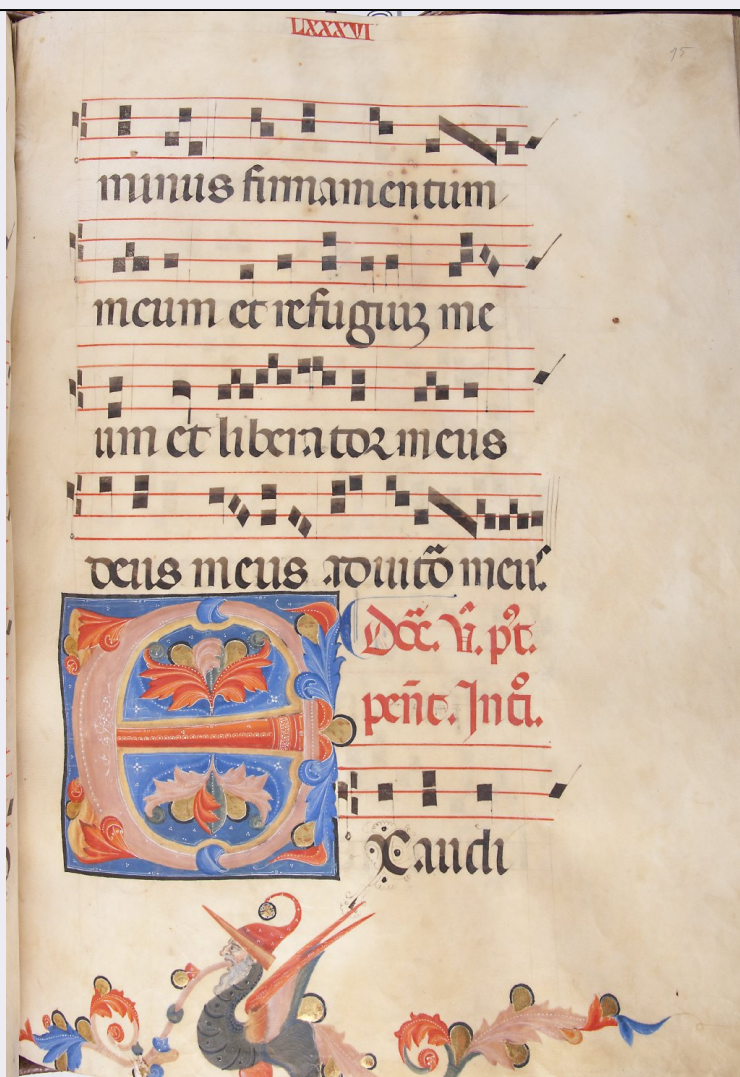 LXXXVI
95
minus firmamentum
meum et refugiuʒ me
um et liberator meus
deus meus adiutõ meu᷒.
Dõc. v̄. pꝰt.
peñt. Intͦi.
EXaudi